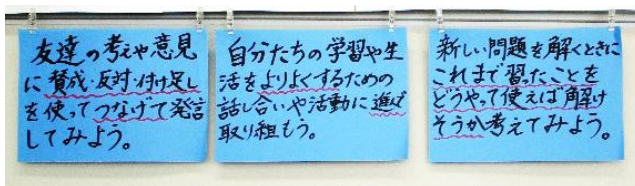 友達の考えや意見
に賛成・反対・付け足し
を使ってつなげて発言
してみよう。
自分たちの学習や生
活をよりよくするための
話し合いや活動に進んで
取り組もう。
新しい問題を解くときに
これまで習ったことを
どうやって使えば解け
そうか考えてみよう。